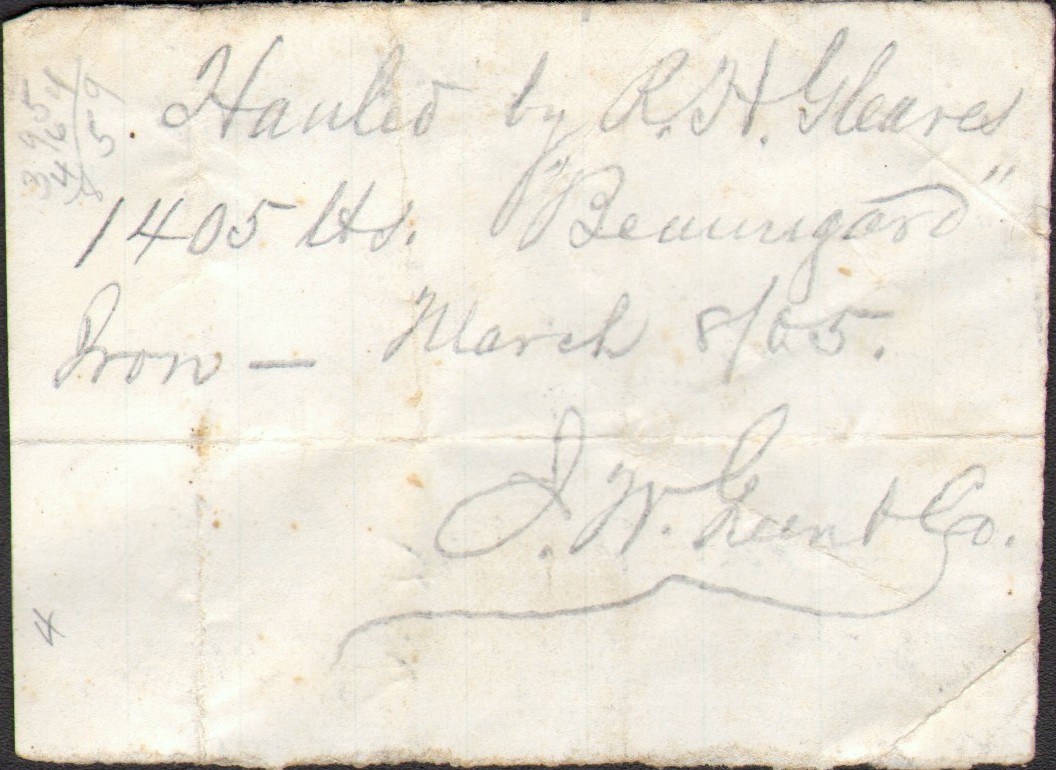 Hauled by R. H. Gleaves
1405 lbs. "Beauregard"
Iron — March 8/65.
J. W. & Co.
395
464
859
4